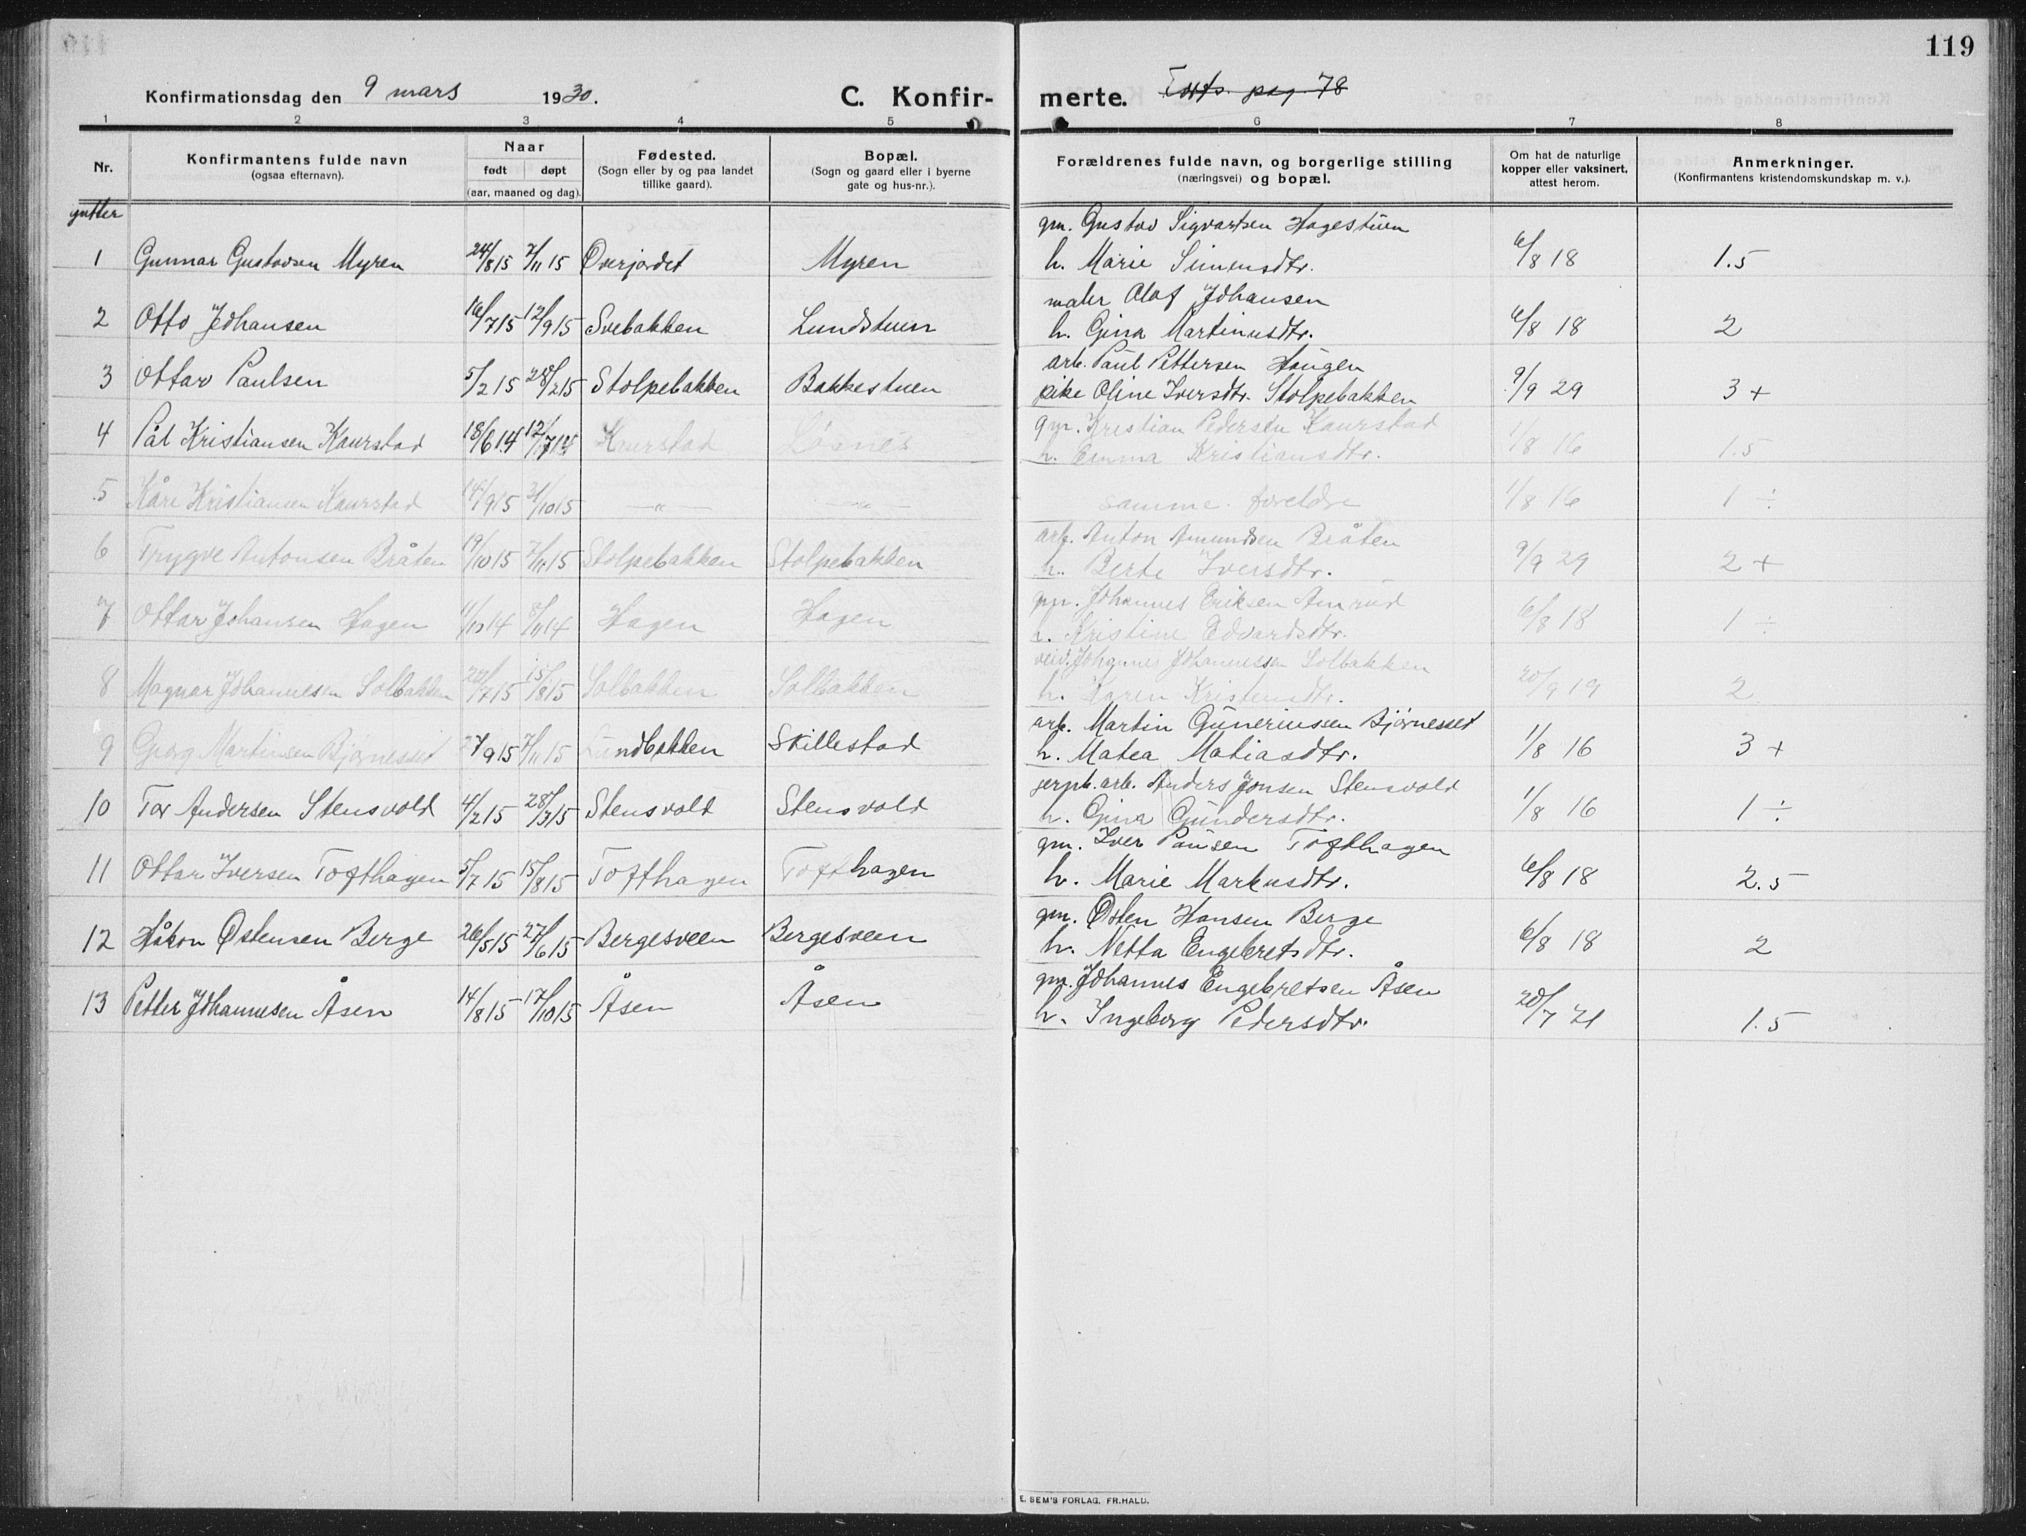 119
Konfirmationsdag den 9 mars 1930.
C. Konfirmerte. Forts. pag. 78
1 2 3 4 5 6 7 8
Nr.
Konfirmantens fulde navn
(ogsaa efternavn).
Naar
født døpt
(aar, maaned og dag).
Fødested.
(Sogn eller by og paa landet
tillike gaard).
Bopæl.
(Sogn og gaard eller i byerne
gate og hus-nr.).
Forældrenes fulde navn, og borgerlige stilling
(næringsvei) og bopæl.
Om hat de naturlige
kopper eller vaksinert,
attest herom.
Anmerkninger.
(Konfirmantens kristendomskundskap m. v.).
gutter
gm. Gustav Sigvartsen Hagestuen
1 Gunnar Gustavsen Myren 24/8 15 7/11 15 Överjordet Myren h. Marie Simensdtr. 6/8 18 1.5
maler Olaf Johansen
2 Otto Johansen 16/7 15 12/9 15 Svebakken Lundstuen h. Gina Martinusdtr. 6/8 18 2
arb. Paul Pettersen Haugen
3 Ottar Paulsen 5/2 15 28/2 15 Stolpebakken Bakkestuen pike Oline Iversdtr. Stolpebakken 9/9 29 3 +
gm. Kristian Pedersen Kaurstad
4 Pål Kristiansen Kaurstad 18/6 14 12/7 14 Kaurstad Løsnes h. Emma Kristiansdtr. 1/8 16 1.5
5 Kåre Kristiansen Kaurstad 14/9 15 31/10 15 — " — — " — samme foreldre 1/8 16 1 ÷
arb. Anton Amundsen Bråten
6 Trygve Antonsen Bråten 19/10 15 7/11 15 Stolpebakken Stolpebakken h. Berte Iversdtr. 9/9 29 2 +
gm. Johannes Eriksen Amrud
7 Ottar Johansen Hagen 1/10 14 8/11 14 Hagen Hagen h. Kristine Edvardsdtr. 6/8 18 1 ÷
Johannes Johannessen Solbakken
8 Magnar Johannesen Solbakken 22/7 15 15/8 15 Solbakken Solbakken h. Karen Kristensdtr. 20/9 19 2
arb. Martin Guneriussen Bjørnesset
9 Georg Martinsen Bjørnesset 27/9 15 7/11 15 Lundbakken Skillestad h. Matea Matiasdtr. 1/8 16 3 +
jernb. arb. Anders Jonsen Stensvold
10 Tor Andersen Stensvold 4/2 15 28/3 15 Stensvold Stensvold h. Gina Gundersdtr. 1/8 16 1 ÷
gm. Iver Paulsen Tofthagen
11 Ottar Iversen Tofthagen 5/7 15 15/8 15 Tofthagen Tofthagen h. Marie Markusdtr. 6/8 18 2.5
gm. Østen Hansen Berge
12 Håkon Østensen Berge 26/5 15 27/6 15 Bergesveen Bergesveen h. Netta Engebretsdtr. 6/8 18 2
gm. Johannes Engebretsen Åsen
13 Petter Johannesen Åsen 14/8 15 17/10 15 Åsen Åsen h. Ingeborg Pedersdtr. 20/7 21 1.5
E. SEM'S FORLAG, FR.HALD.